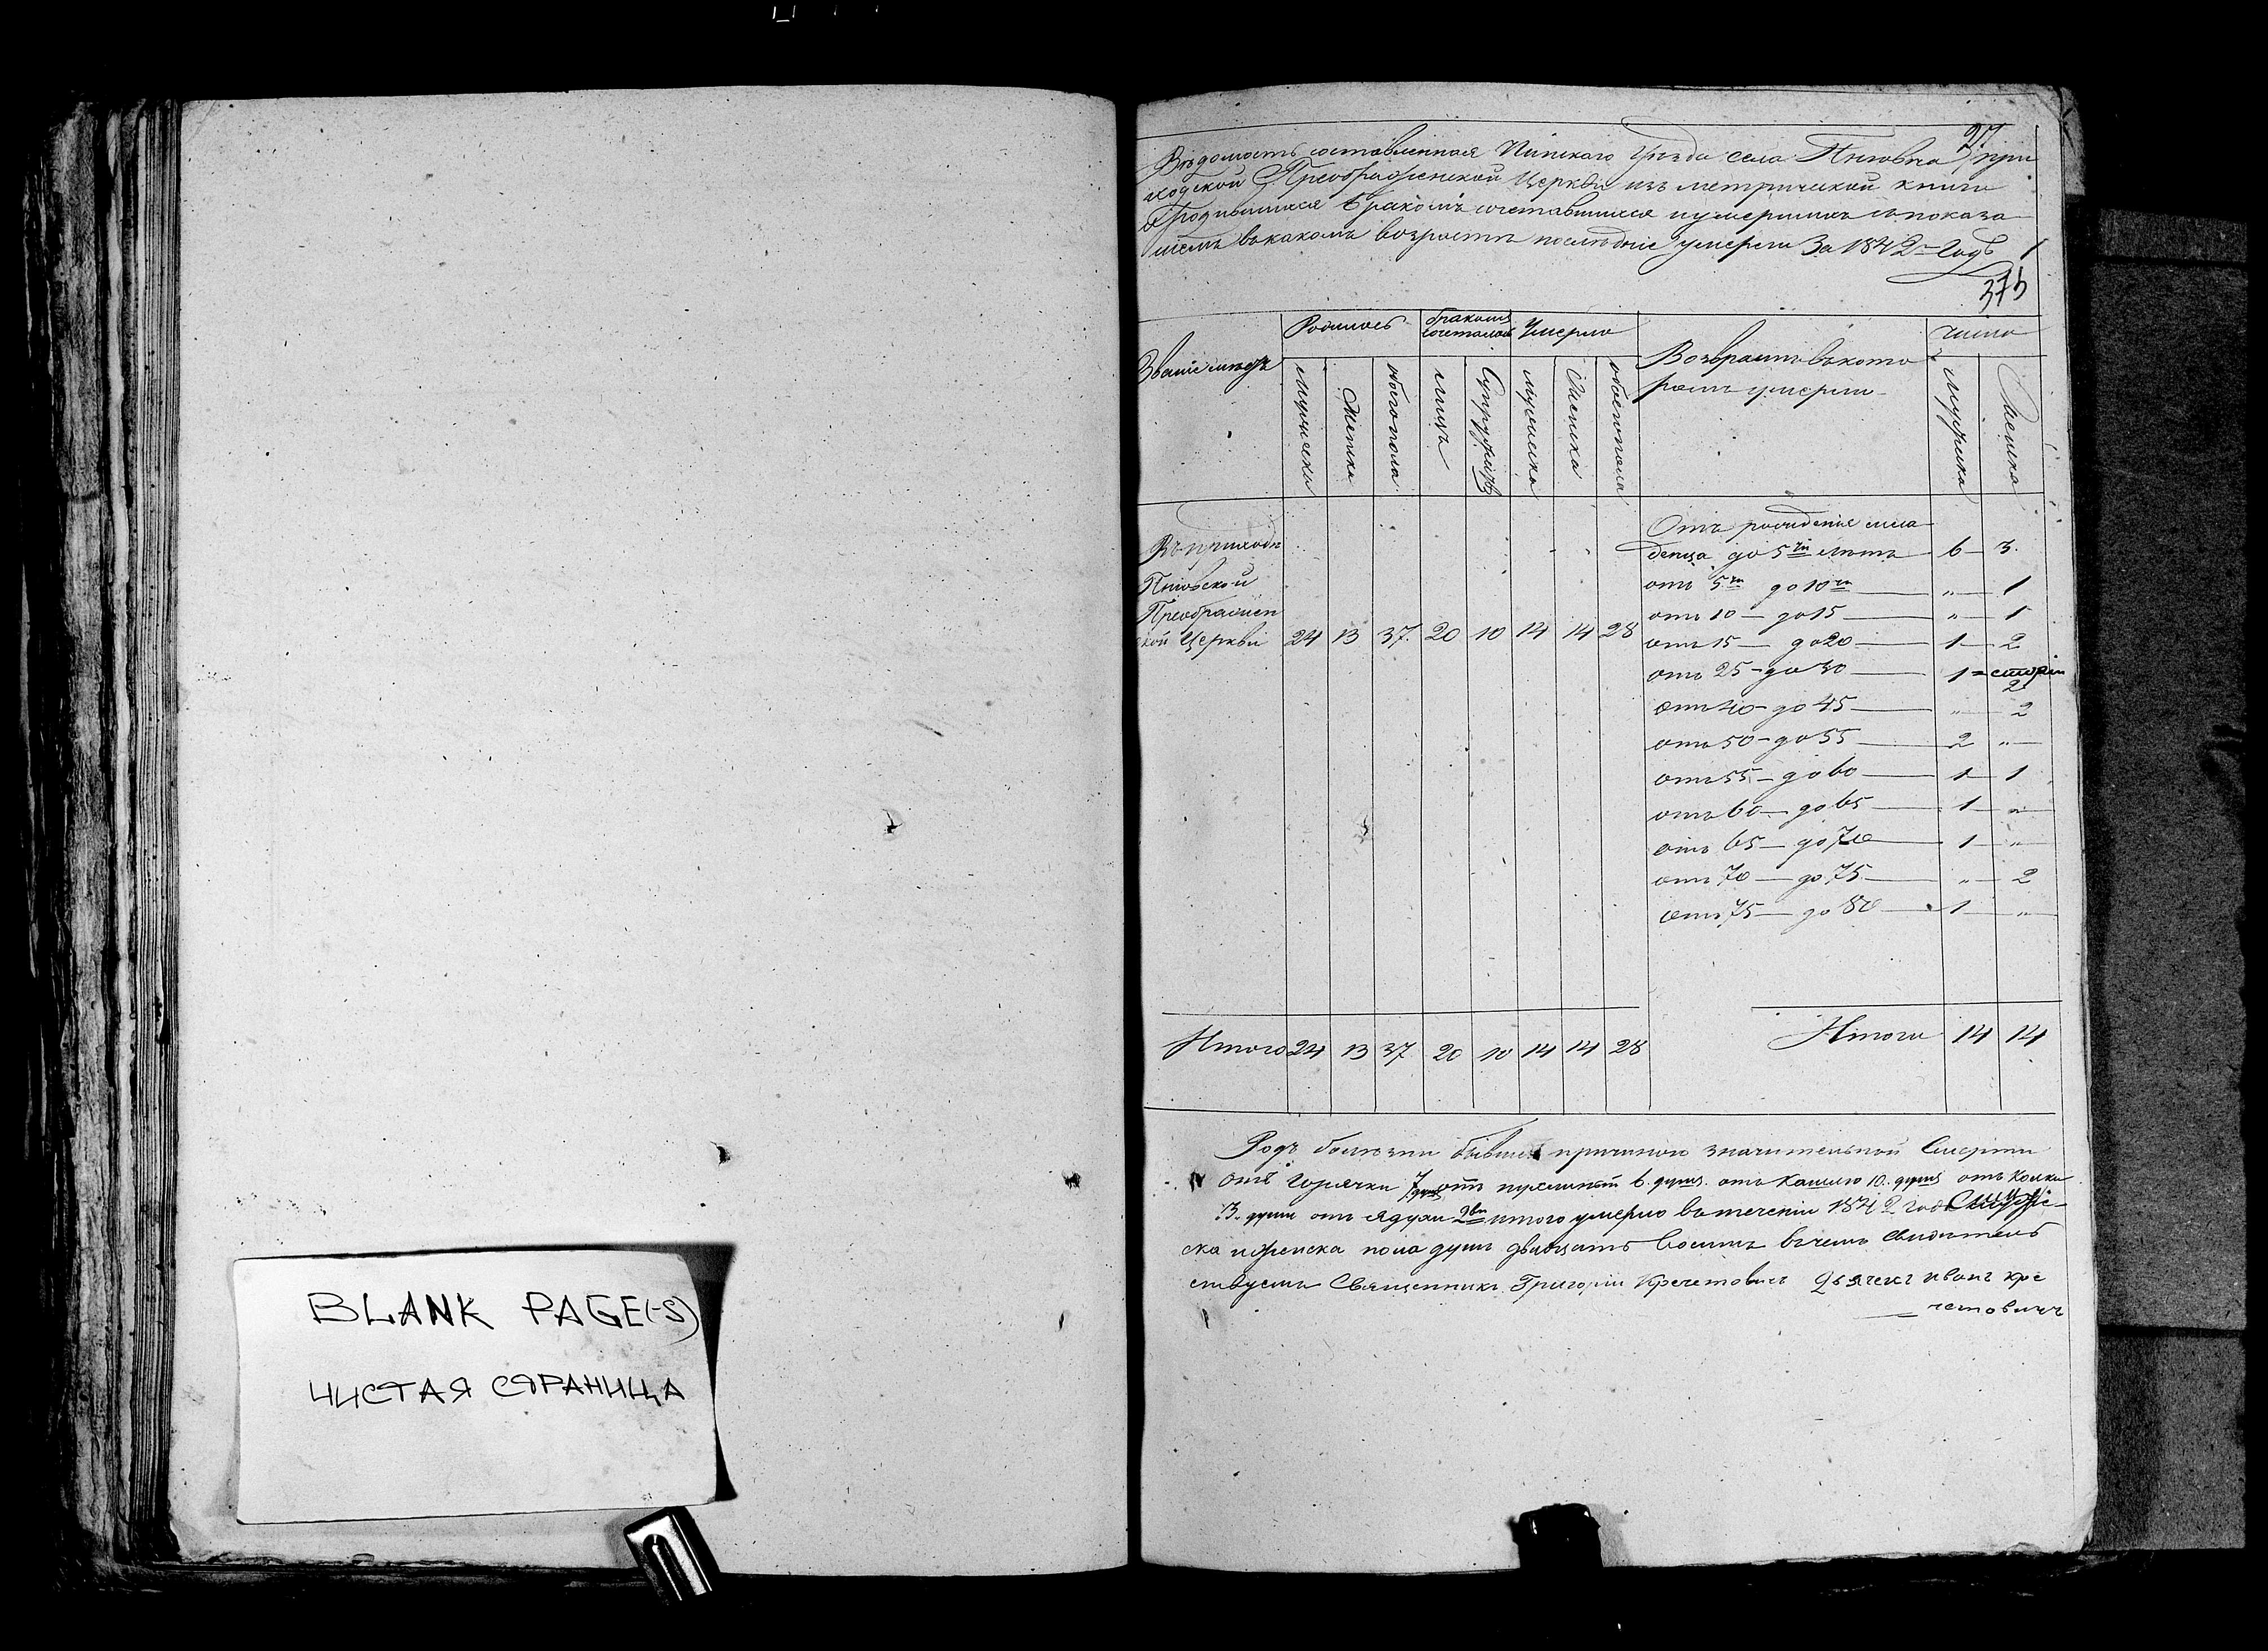 BLANK PAGE(-S)
ЧИСТАЯ СТРАНИЦА
Вѣдомость составленная Пинскаго Уѣзда села при
ходской Преображенской Церкви изъ метрической книги
о родившихся бракомъ сочетавшихся и умершихъ съ показа
ніемъ въ какомъ возрастѣ последніе умерли За 1842 Годъ
375
Званіе мѣстъ
Родилось
бракомъ сочеталось
Умерло
Возврастъ въ кото
ромъ умерли
Число
Мужеска
Женска
обоего пола
лицъ
Супружествъ
мужеска
Женска
обоего пола
Мужеска
Женска
Въ приходѣ
Преображен
ской Церкви 24 13 37 20 10 14 14 28
Отъ рождения мла
денца до 5ти летъ 6 3
отъ 5ти до 10ти „ 1
отъ 10 до 15 „ 1
отъ 15 до 20 1 2
отъ 25 до 30 1 2
отъ 40 до 45 „ 2
отъ 50 до 55 2 „
отъ 55 до 60 1 1
отъ 60 до 65 1 „
отъ 65 до 70 1 „
отъ 70 до 75 „ 2
отъ 75 до 80 1 „
Итого 24 13 37 20 10 14 14 28
Итого 14 14
Родъ болезни бывшей причиною значительной Смерти
отъ Горячки 7 душъ отъ 6 душъ отъ Кашлю 10 душъ отъ Колки
3 души отъ 2ве итого умерло въ теченіи 1842 Года
ска и женска пола душъ двадцать восемъ въ чемъ свидетель
ствуемъ Священникъ Григорій Кречетовичъ Дьячекъ Иванъ Кре
четовичъ